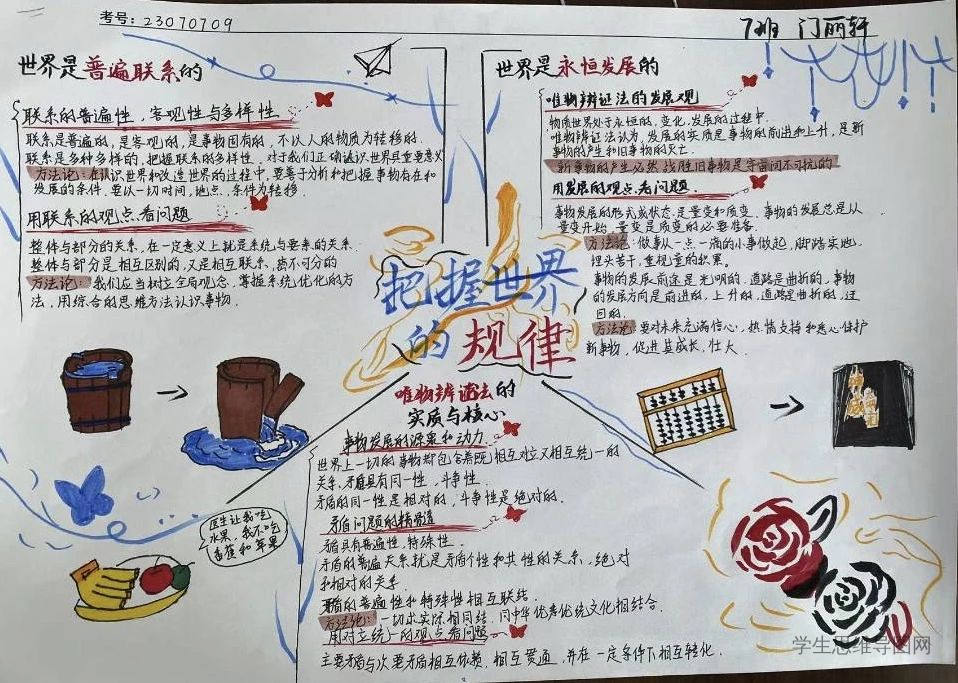 考号：23070709
7班 门丽轩
世界是普遍联系的
联系的普遍性、客观性与多样性
联系是普遍的，是客观的，是事物固有的，不以人的物质为转移的.
联系是多种多样的，把握联系的多样性，对于我们正确认识世界具重要意义
方法论：在认识世界和改造世界的过程中，要善于分析和把握事物存在和
发展的条件.要以一切时间，地点，条件为转移.
用联系的观点看问题
整体与部分的关系，在一定意义上就是系统与要素的关系.
整体与部分是相互区别的，又是相互联系，密不可分的
方法论：我们应当树立全局观念，掌握系统优化的方
法，用综合的思维方法认识事物.
世界是永恒发展的
唯物辨证法的发展观
物质世界处于永恒的，变化，发展的过程中.
唯物辨证法认为，发展的实质是事物的前进和上升，是新
事物的产生和旧事物的灭亡.
新事物的产生必然战胜旧事物是宇宙间不可抗的
用发展的观点看问题.
事物发展的形式或状态是量变和质变.事物的发展总是从
量变开始，量变是质变的必要准备.
方法论：做事从一点一滴的小事做起，脚踏实地.
埋头苦干，重视量的积累，
事物的发展前途是光明的，道路是曲折的，事物
的发展方向是前进的，上升的，道路是曲折的，迂
回的.
方法论 要对未来充满信心，热情支持和悉心保护
新事物，促进其成长，壮大.
把握世界
的规律
唯物辨证法的
实质与核心
事物发展的源泉和动力
世界上一切的事物都包含着既相互对立又相互统一的
关系，矛盾具有同一性，斗争性.
矛盾的同一性是相对的，斗争性是绝对的.
矛盾问题的精髓
矛盾具有普遍性，特殊性.
矛盾的普遍关系就是矛盾个性和共性的关系，绝对
和相对的关系
矛盾的普遍性和特殊性相互联结.
方法论：一切求实际相同结.同中华优秀优统文化相结合.
用对立统一的观点看问题
主要矛盾与次要矛盾相互依赖，相互贯通，并在一定条件下相互转化.
医生让我吃
水果，我不吃
香蕉和苹果
学生思维导图网